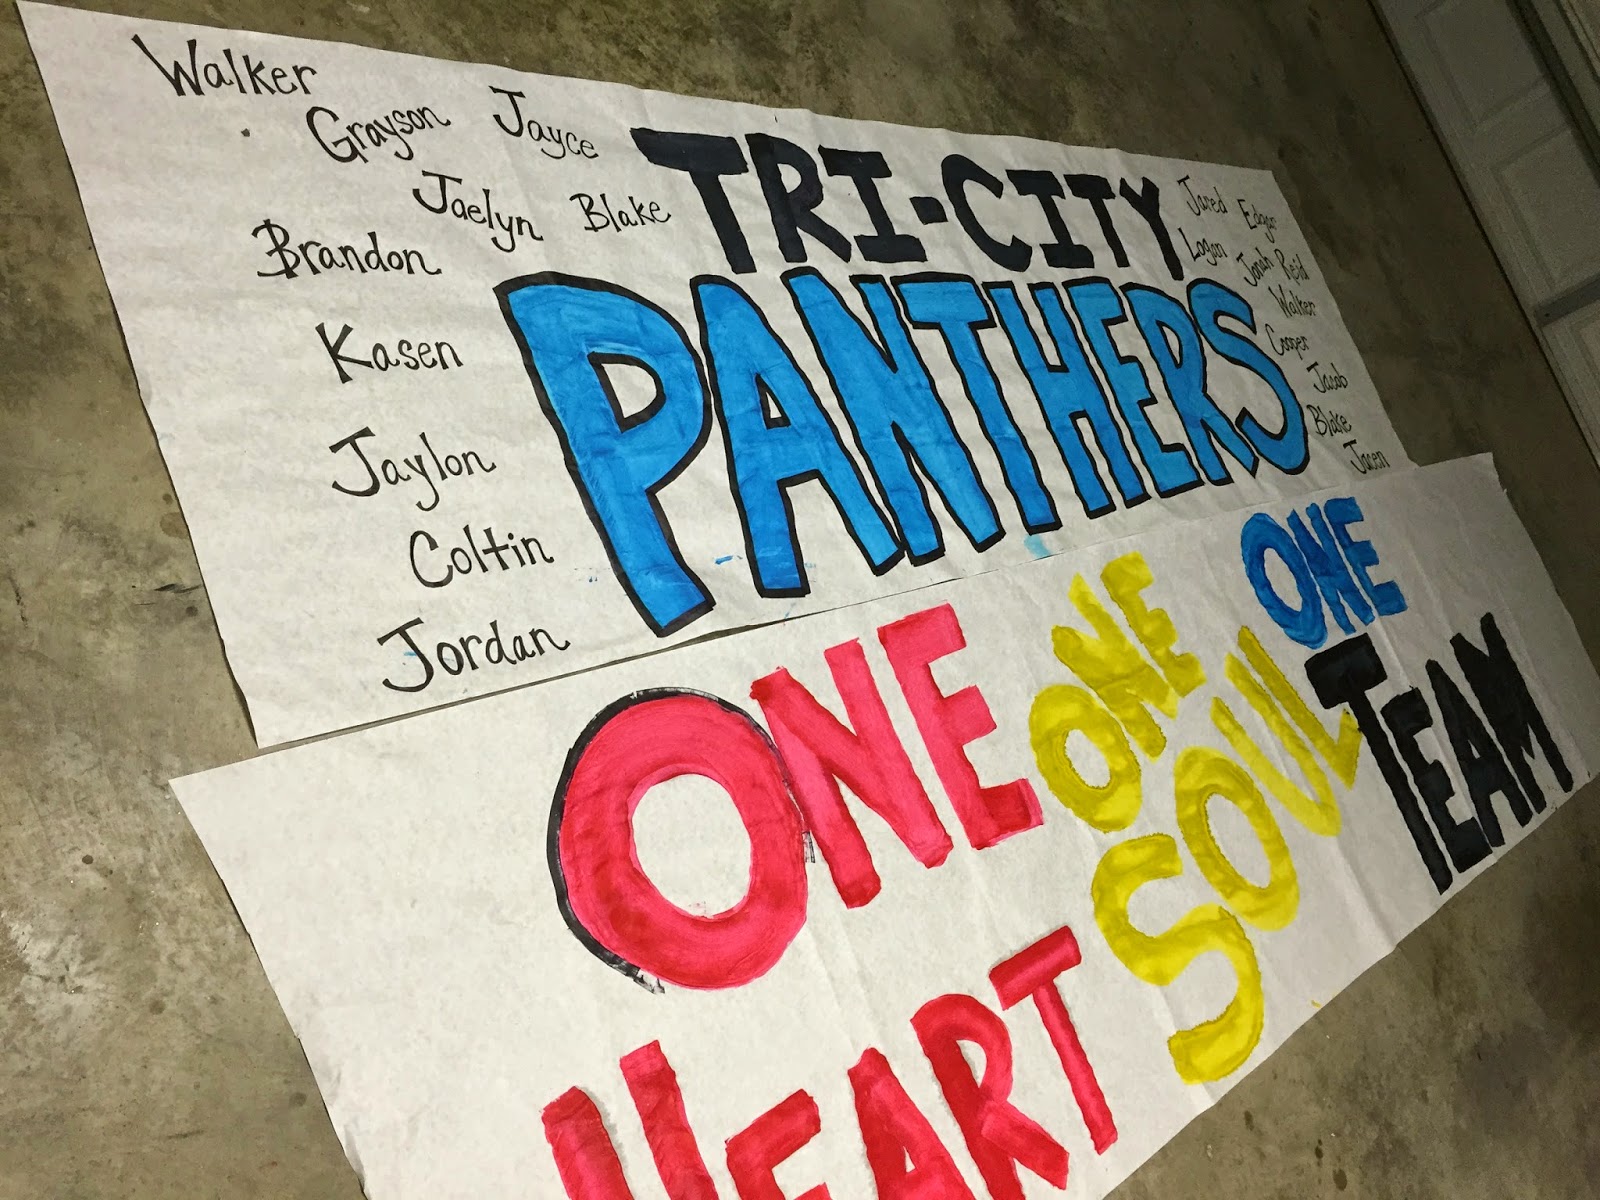 Walker
Grayson Jayce
Jaelyn Blake
Brandon
Kasen
Jaylon
Coltin
Jordan
TRI-CITY
PANTHERS
Jared Edgar
Logan Jonah Reid
Walker
Cooper
Jacob
Blake
Jacen
ONE
HEART
ONE
SOUL
ONE
TEAM